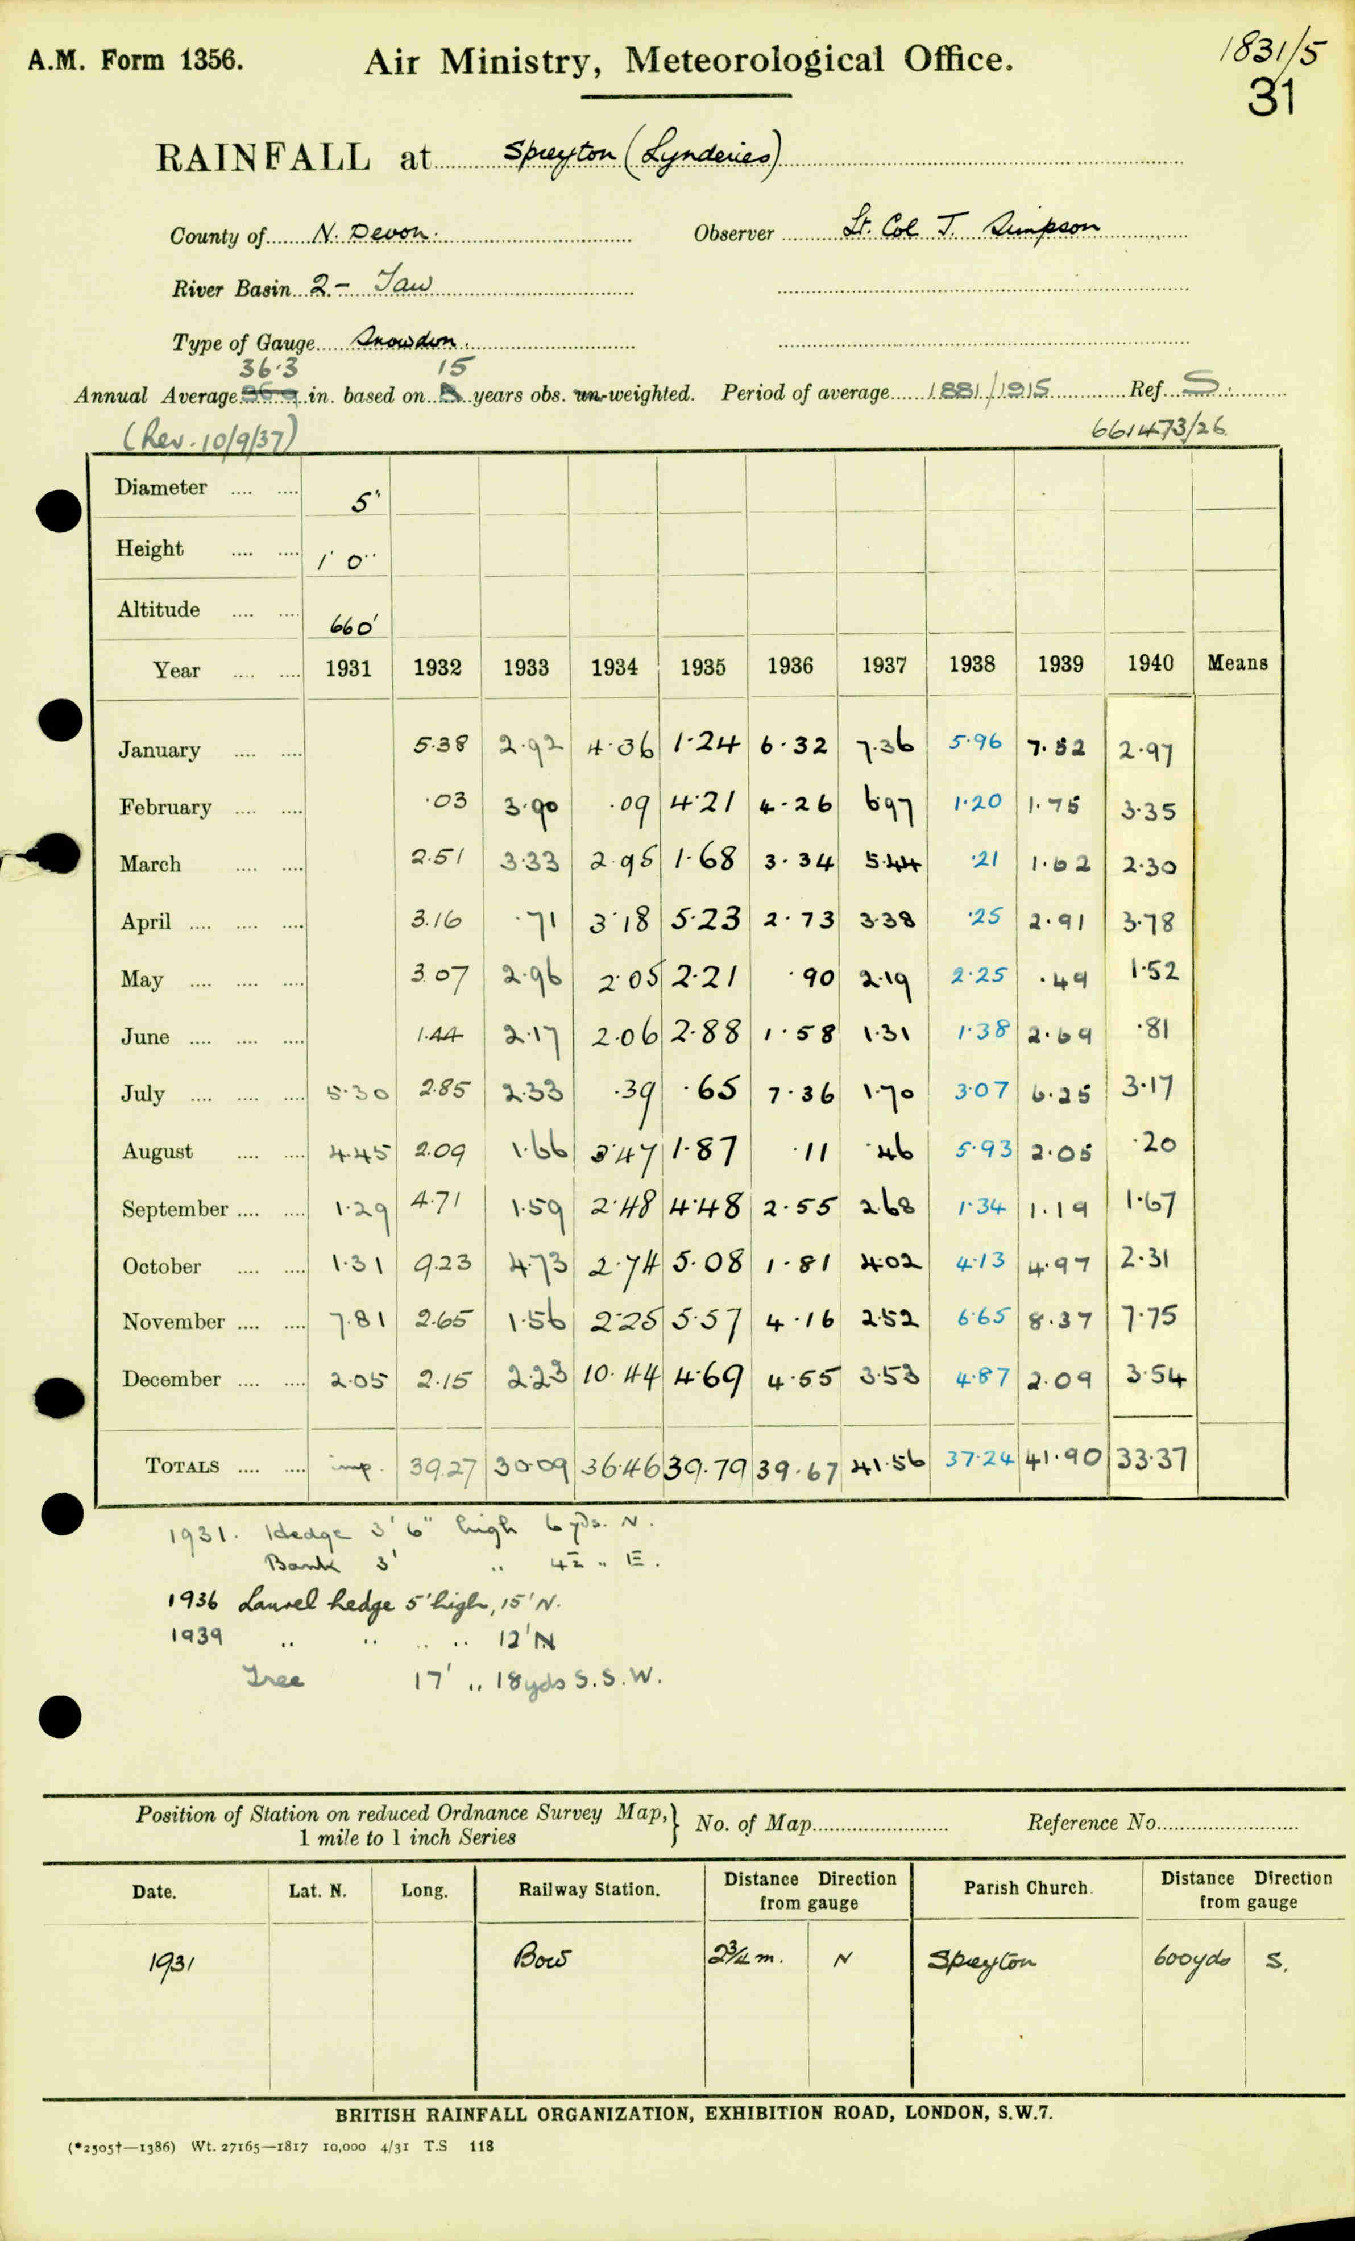 A.M. Form 1356. Air Ministry, Meteorological Office. 1831/5
31
RAINFALL at Spreyton (Lynderies)
County of N. Devon. Observer Lt. Col T. Simpson
River Basin 2 - Taw
Type of Gauge Snowdon.
36·3 15
Annual Average in. based on years obs. un-weighted. Period of average 1881/1915 Ref. S.
(Rev. 10/9/37) 661473/26
Diameter .... .... 5"
Height .... .... 1' 0"
Altitude .... .... 660'
Year .... .... 1931 1932 1933 1934 1935 1936 1937 1938 1939 1940 Means
January .... .... 5·38 2·92 4·36 1·24 6·32 7·36 5·96 7·52 2·97
February .... .... ·03 3·90 ·09 4·21 4·26 6·97 1·20 1·75 3·35
March .... .... 2·51 3·33 2·95 1·68 3·34 5·44 ·21 1·62 2·30
April .... .... .... 3.16 ·71 3·18 5·23 2·73 3·38 ·25 2·91 3·78
May .... .... .... 3.07 2·96 2·05 2·21 ·90 2·19 2·25 ·49 1·52
June .... .... .... 1·44 2·17 2·06 2·88 1·58 1·31 1·38 2·69 ·81
July .... .... .... 5·30 2·85 2·33 ·39 ·65 7·36 1·70 3·07 6·25 3·17
August .... .... 4·45 2·09 1·66 3·47 1·87 ·11 ·46 5·93 2·05 ·20
September .... .... 1·29 4·71 1·59 2·48 4·48 2·55 2·68 1·34 1·19 1·67
October .... .... 1·31 9·23 4·73 2·74 5·08 1·81 4·02 4·13 4·97 2·31
November .... .... 7·81 2·65 1·56 2·25 5·57 4·16 2·52 6·65 8·37 7·75
December .... .... 2·05 2·15 2·23 10·44 4·69 4·55 3·53 4·87 2·09 3·54
TOTALS .... .... imp. 39.27 30·09 36·46 39·79 39·67 41·56 37·24 41·90 33·37
1931. Hedge 3' 6" high 6 yds. N.
Bank 3' " 4½ " E.
1936 Laurel hedge 5' high, 15' N.
1939 " " " " 12' N
Tree 17' " 18 yds S.S.W.
Position of Station on reduced Ordnance Survey Map,} No. of Map Reference No.
1 mile to 1 inch Series
Date. Lat. N. Long. Railway Station. Distance Direction from gauge Parish Church. Distance Direction from gauge
1931 Bow 2¾ m. N Spreyton 600 yds S.
BRITISH RAINFALL ORGANIZATION, EXHIBITION ROAD, LONDON, S.W.7.
(*2505†—1386) Wt. 27165—1817 10,000 4/31 T.S 118